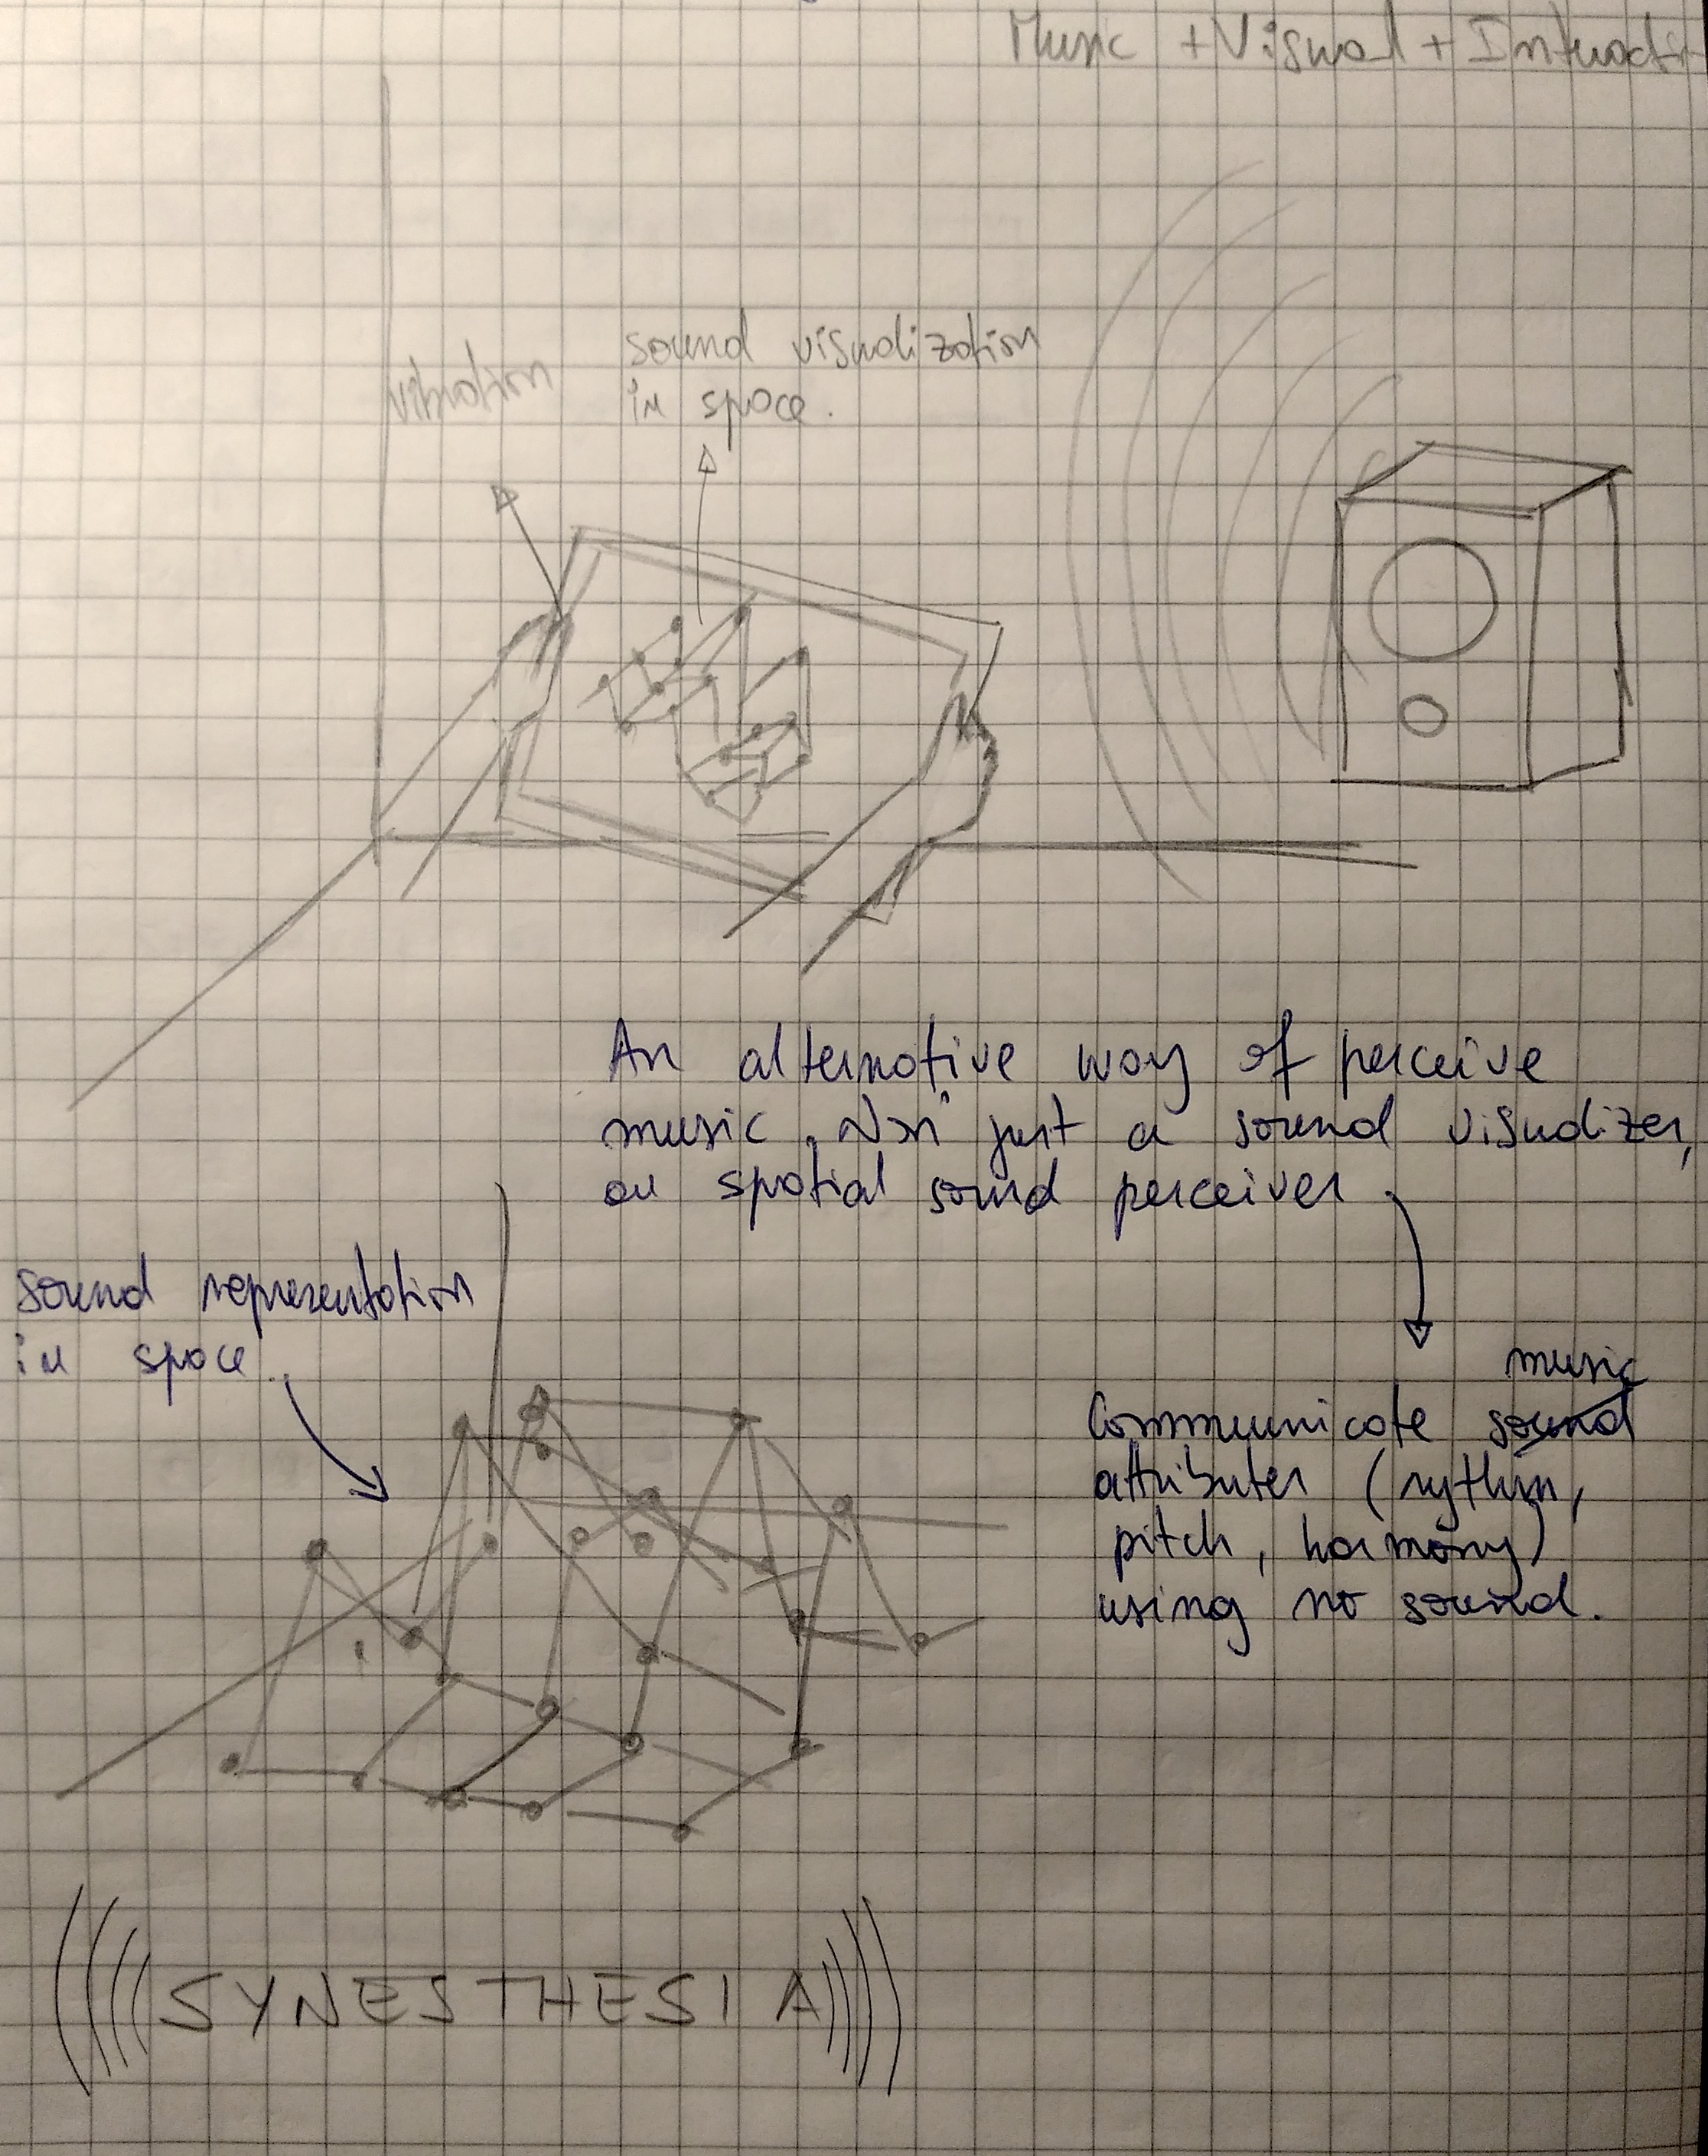 Music + Visual + Interactin
vibration
sound visualization
in space.
An alternative way of perceive
music. Non just a sound visualizer,
au spatial sound perceiver.
sound representation
in space.
music
Communicate sound
attributes (rythm,
pitch, harmony)
using no sound.
SYNESTHESIA